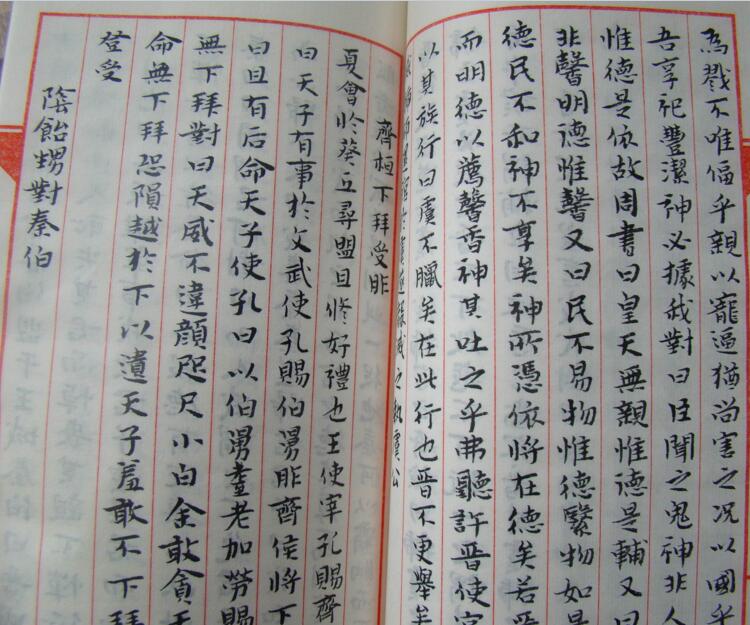 為戮不唯偪乎親以寵逼猶尚害之况以國乎
吾享祀豐潔神必據我對曰臣聞之鬼神非人
惟德是依故周書曰皇天無親惟德是輔又曰
非馨明德惟馨又曰民不易物惟德繄物如是
德民不和神不享矣神所憑依將在德矣若晉
而明德以薦馨香神其吐之乎弗聽許晉使宮
以其族行曰虞不臘矣在此行也晉不更舉矣
館於虞遂襲滅之執虞公
齊桓下拜受胙
夏會於葵丘尋盟且修好禮也王使宰孔賜齊
曰天子有事於文武使孔賜伯舅胙齊侯將下
曰且有后命天子使孔曰以伯舅耋老加勞賜
無下拜對曰天威不違顏咫尺小白余敢貪天
命無下拜恐隕越於下以遺天子羞敢不下拜
登受
陰飴甥對秦伯